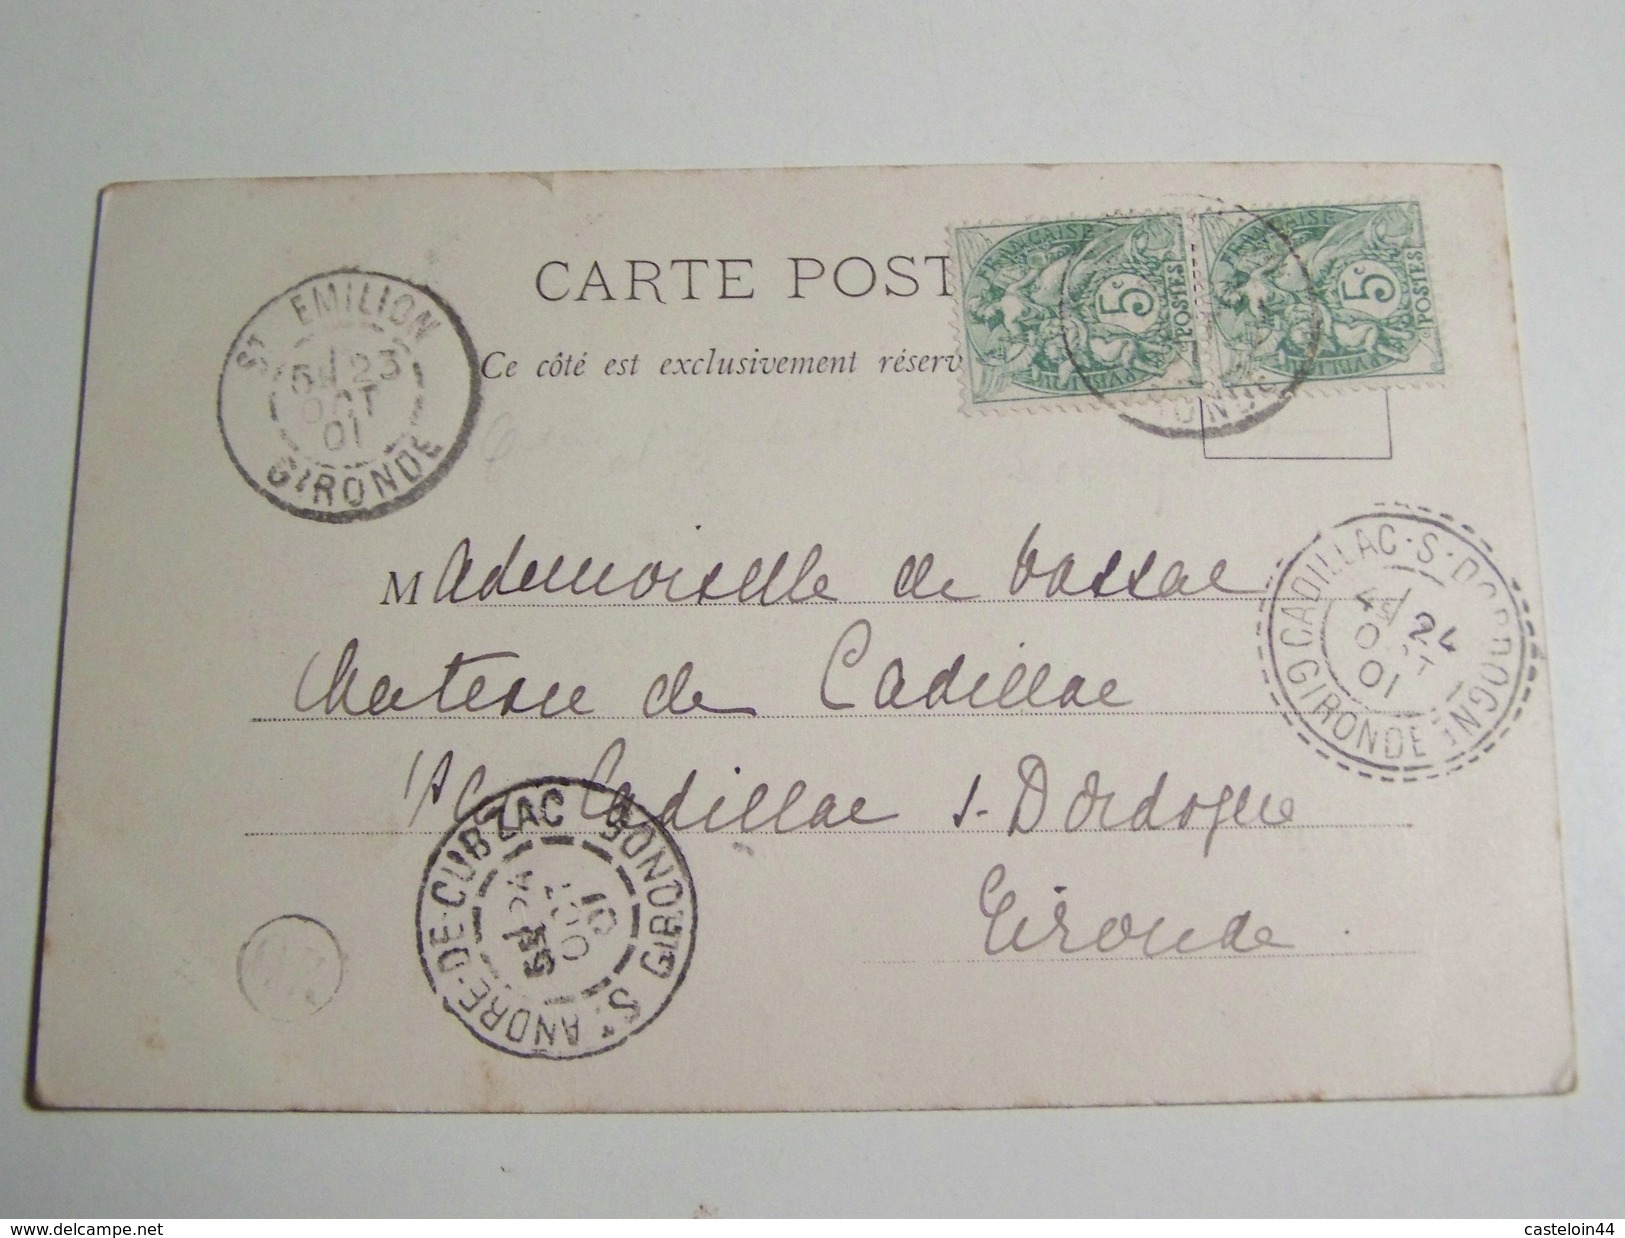 CARTE POST
Ce côté est exclusivement réserv
RÉPUBLIQUE FRANÇAISE 5c POSTES
FRANÇAISE 5c POSTES
ST EMILION
5E 23
OCT
01
GIRONDE
Mademoiselle de Vassal
Chateau de Cadillac
Cadillac s. Dordogne
Gironde.
CADILLAC-S-DORDOGNE
4E 24
OCT
01
GIRONDE
ST ANDRE-DE-CUBZAC
24
OCT
01
GIRONDE
www.delcampe.net
casteloin44